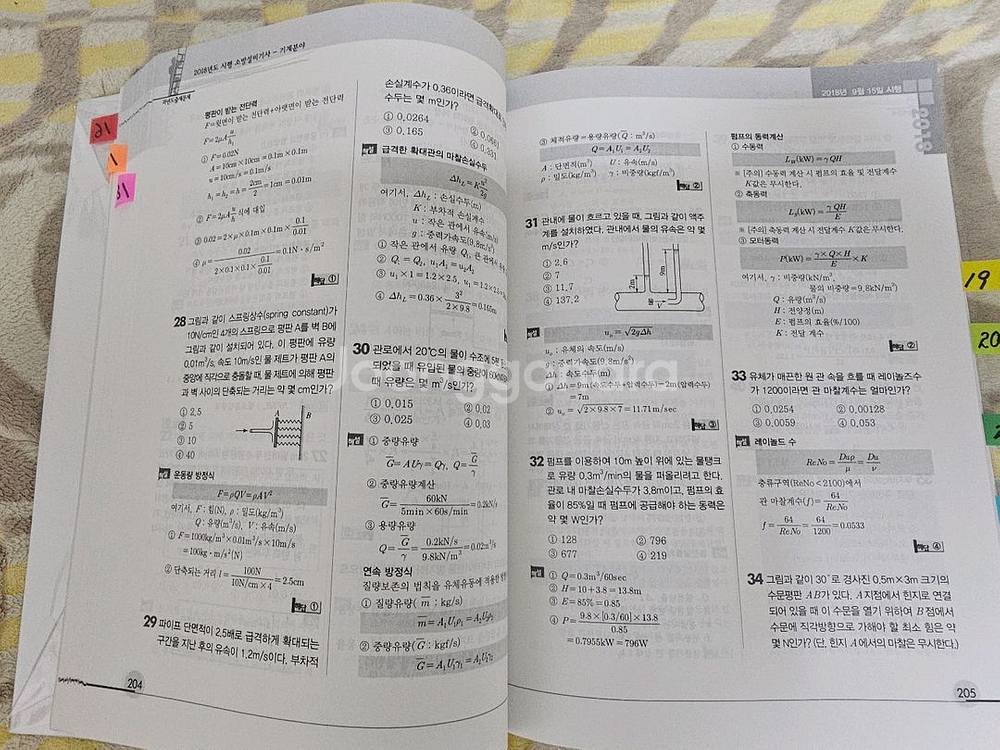 2018년도 시행 소방설비기사 - 기계분야
과년도출제문제
평판이 받는 전단력
F=윗면이 받는 전단력+아랫면이 받는 전단력
F=2μA u/h
① F=0.02N
A=10cm×10cm=0.1m×0.1m
u=10cm/s=0.1m/s
h₁=h₂=h= 2cm/2 =1cm=0.01m
② F=2μA u/h 식에 대입
③ 0.02=2×μ×0.1m×0.1m× 0.1/0.01
④ μ= 0.02/(2×0.1×0.1× 0.1/0.01) =0.1N·s/m²
해답 ①
28 그림과 같이 스프링상수(spring constant)가
10N/cm인 4개의 스프링으로 평판 A를 벽 B에
그림과 같이 설치되어 있다. 이 평판에 유량
0.01m³/s, 속도 10m/s인 물 제트가 평판 A의
중앙에 직각으로 충돌할 때, 물 제트에 의해 평판
과 벽 사이의 단축되는 거리는 약 몇 cm인가?
① 2.5
② 5
③ 10
④ 40
A
B
해설 운동량 방정식
F=ρQV=ρAV²
여기서, F : 힘(N), ρ : 밀도(kg/m³)
Q : 유량(m³/s), V : 유속(m/s)
① F=1000kg/m³×0.01m³/s×10m/s
=100kg·m/s²(N)
② 단축되는 거리 l= 100N/(10N/cm×4) =2.5cm
해답 ①
29 파이프 단면적이 2.5배로 급격하게 확대되는
구간을 지난 후의 유속이 1.2m/s이다. 부차적
204
손실계수가 0.36이라면 급격확대로
수두는 몇 m인가?
① 0.0264
② 0.0661
③ 0.165
④ 0.331
해설 급격한 확대관의 마찰손실수두
Δh_L=K u²/2g
여기서, Δh_L : 손실수두(m)
K : 부차적 손실계수
u : 작은 관에서 유속(m/s)
g : 중력가속도(9.8m/s²)
① 작은 관에서 유량 Q₁, 큰 관에서
② Q₁=Q₂, u₁A₁=u₂A₂
③ u₁×1=1.2×2.5, u₁=1.2×2.5
④ Δh_L=0.36× 3²/(2×9.8) =0.165m
30 관로에서 20℃의 물이 수조에 5분
되었을 때 유입된 물의 중량이 60kN
때 유량은 몇 m³/s인가?
① 0.015
② 0.02
③ 0.025
④ 0.03
해설 ① 중량유량
G=AUγ=Qγ, Q= G/γ
② 중량유량계산
G= 60kN/(5min×60s/min) =0.2kN/s
③ 용량유량
Q= G/γ = 0.2kN/s/9.8kN/m³ =0.02m³/s
연속 방정식
질량보존의 법칙을 유체유동에 적용한
① 질량유량(m : kg/s)
m=A₁U₁ρ₁=A₂U₂ρ₂
② 중량유량(G : kgf/s)
G=A₁U₁γ₁=A₂U₂γ₂
2018년 9월 15일 시행
2018
③ 체적유량=용량유량(Q : m³/s)
Q=A₁U₁=A₂U₂
A : 단면적(m²) U : 유속(m/s)
ρ : 밀도(kg/m³) γ : 비중량(kg/m³)
해답 ②
31 관내에 물이 흐르고 있을 때, 그림과 같이 액주
계를 설치하였다. 관내에서 물의 유속은 약 몇
m/s인가?
① 2.6
② 7
③ 11.7
④ 137.2
2m
9m
물
V
해설
u₀=√2gΔh
u₀ : 유체의 속도(m/s)
g : 중력가속도(9.8m/s²)
Δh : 속도수두(m)
① Δh=9m(속도수두+압력수두)-2m(압력수두)
=7m
② u₀=√2×9.8×7=11.71m/sec
해답 ③
32 펌프를 이용하여 10m 높이 위에 있는 물탱크
로 유량 0.3m³/min의 물을 퍼올리려고 한다.
관로 내 마찰손실수두가 3.8m이고, 펌프의 효
율이 85%일 때 펌프에 공급해야 하는 동력은
약 몇 W인가?
① 128
② 796
③ 677
④ 219
해설 ① Q=0.3m³/60sec
② H=10+3.8=13.8m
③ E=85%=0.85
④ P= 9.8×[0.3/60]×13.8/0.85
=0.7956kW=796W
펌프의 동력계산
① 수동력
L_W(kW)=γQH
※ [주의] 수동력 계산 시 펌프의 효율 및 전달계수
K값은 무시한다.
② 축동력
L_S(kW)= γQH/E
※ [주의] 축동력 계산 시 전달계수 K값은 무시한다.
③ 모터동력
P(kW)= γ×Q×H/E ×K
여기서, γ : 비중량(kN/m³,
물의 비중량=9.8kN/m³)
Q : 유량(m³/s)
H : 전양정(m)
E : 펌프의 효율(%/100)
K : 전달 계수
해답 ②
33 유체가 매끈한 원 관 속을 흐를 때 레이놀즈수
가 1200이라면 관 마찰계수는 얼마인가?
① 0.0254
② 0.00128
③ 0.0059
④ 0.053
해설 레이놀드 수
ReNo= Duρ/μ = Du/ν
층류구역(ReNo<2100)에서
관 마찰계수(f)= 64/ReNo
f= 64/ReNo = 64/1200 =0.0533
해답 ④
34 그림과 같이 30°로 경사진 0.5m×3m 크기의
수문평판 AB가 있다. A지점에서 힌지로 연결
되어 있을 때 이 수문을 열기 위하여 B점에서
수문에 직각방향으로 가해야 할 최소 힘은 약
몇 N인가? (단, 힌지 A에서의 마찰은 무시한다.)
205
19
20